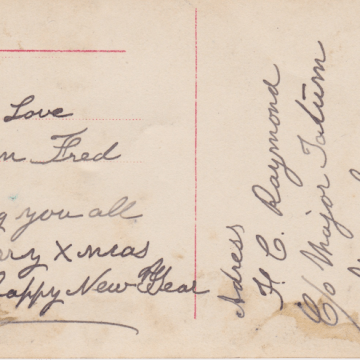 Love
Fred
you all
Xmas
Happy New Year
Adress
H. C. Raymond
C/o Major Tatum